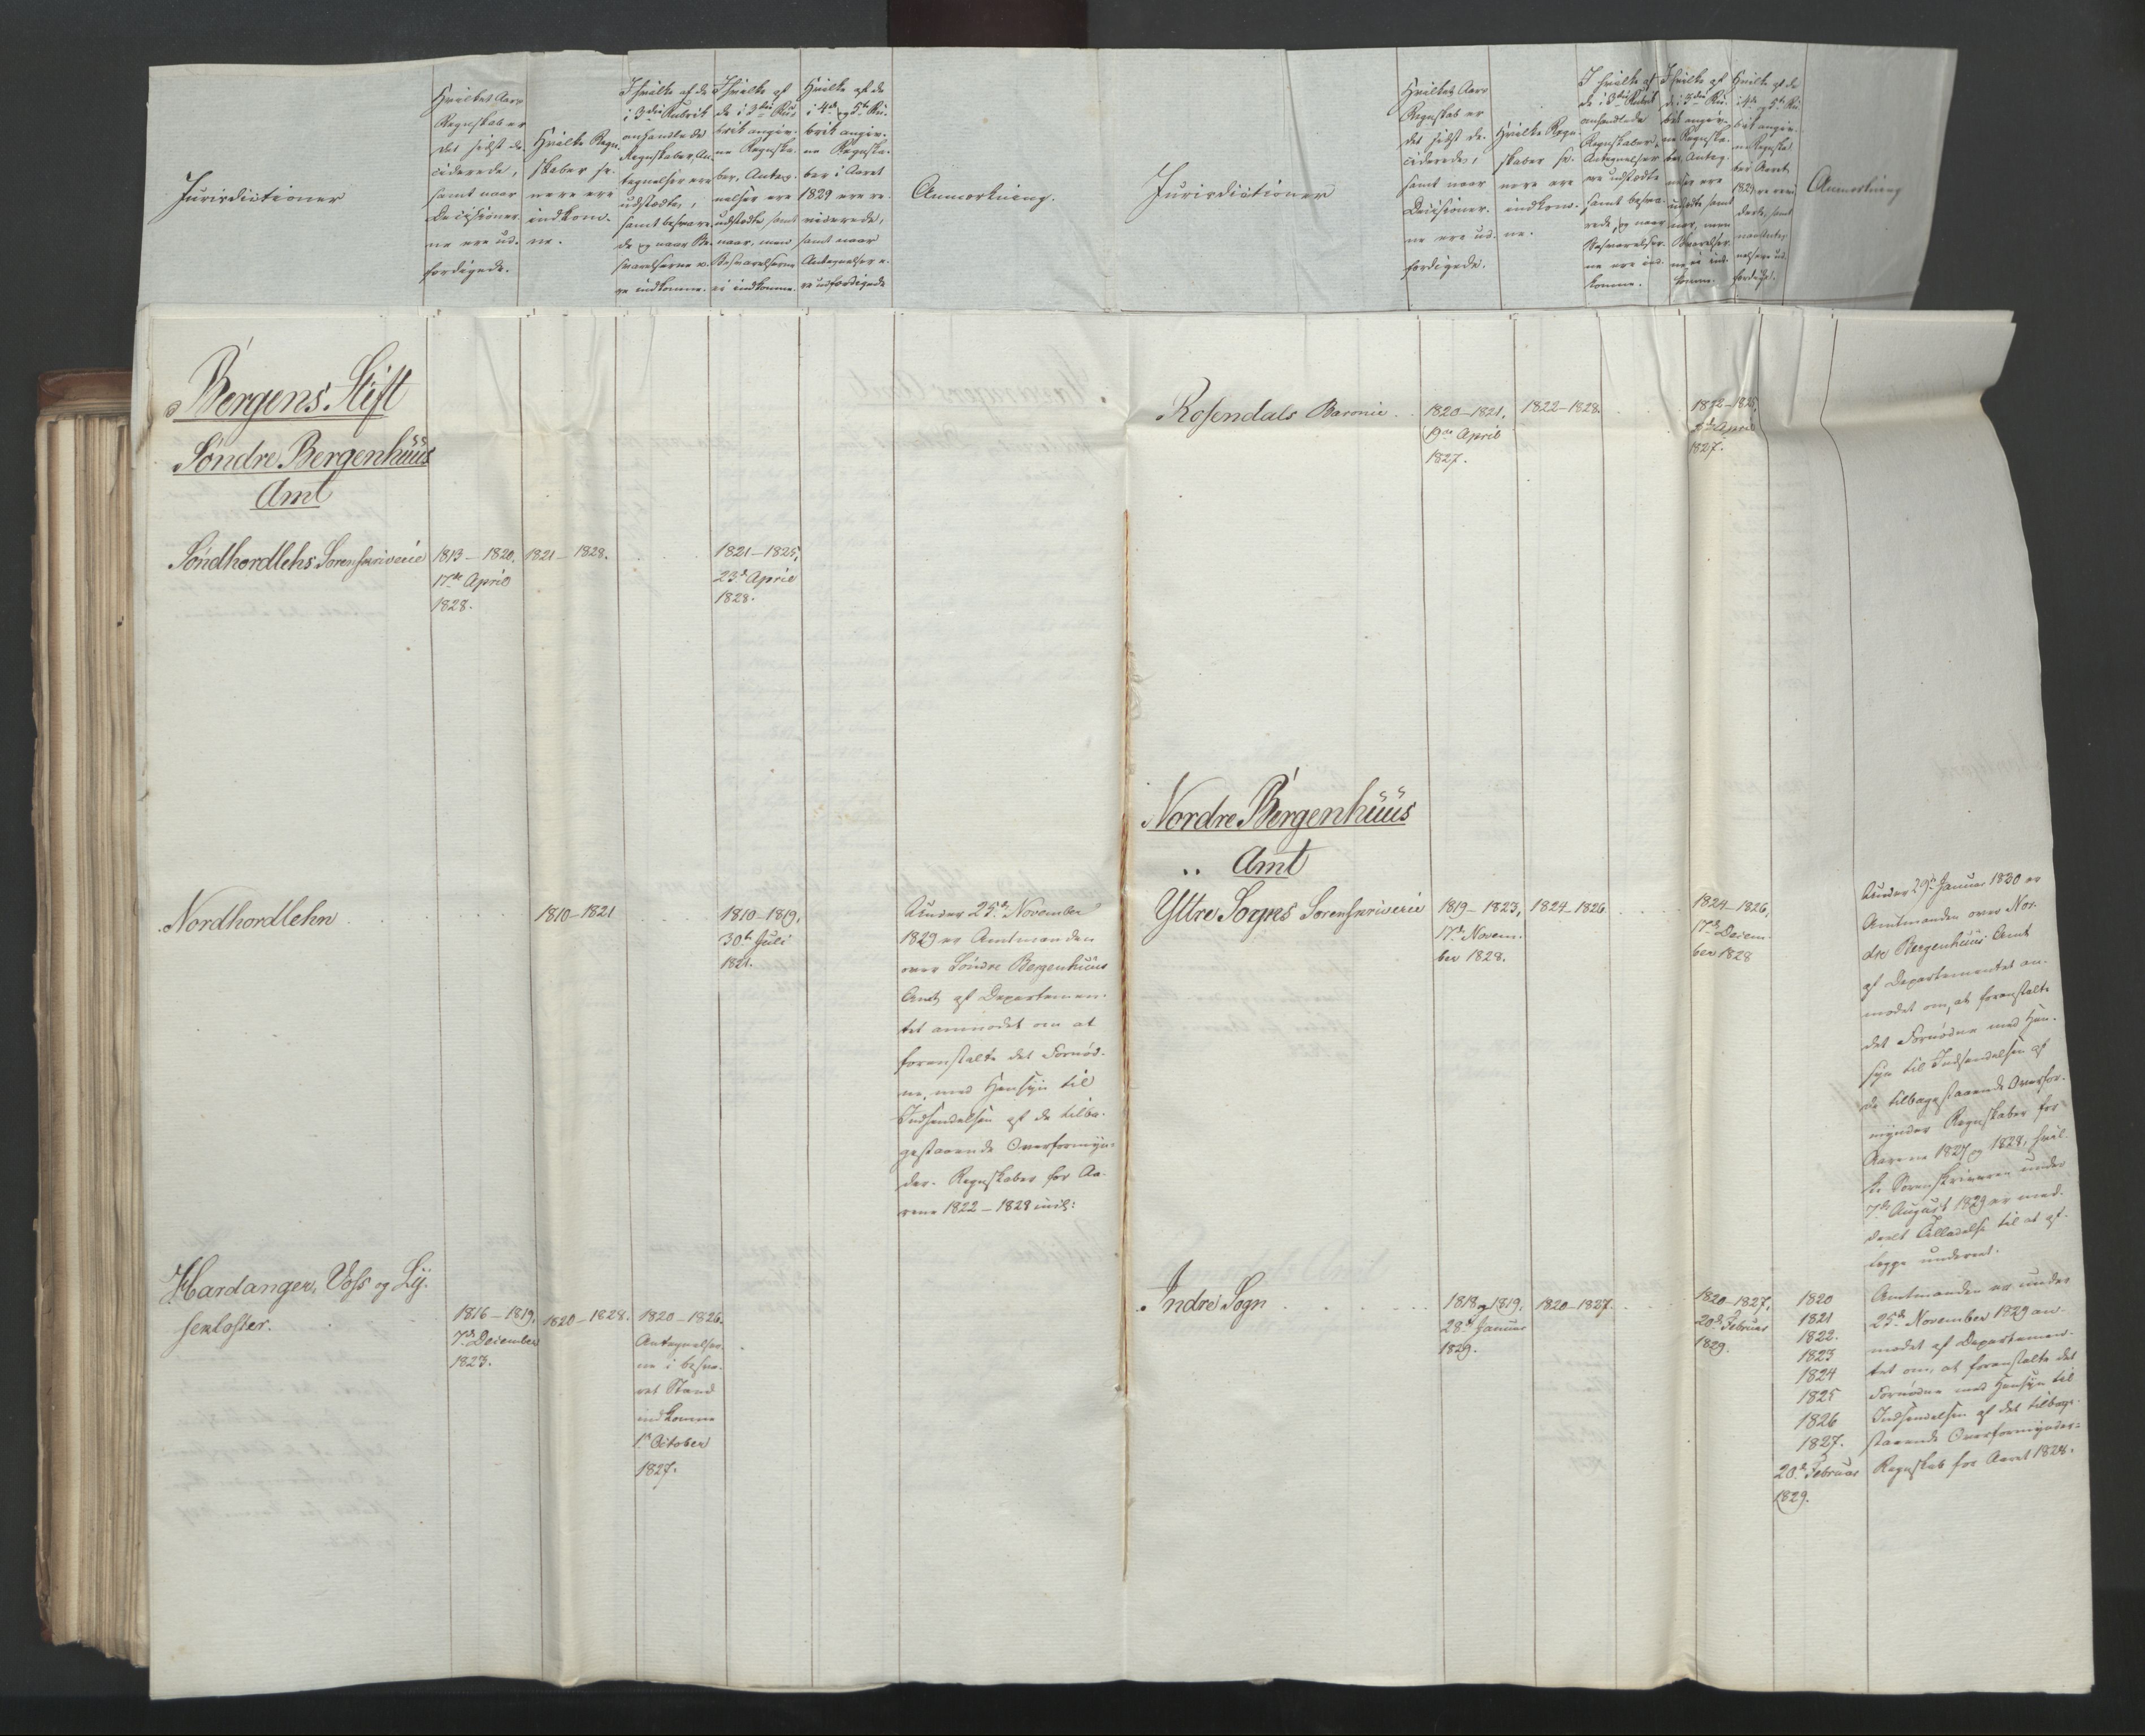 Jurisdictioner
Hvilket Aars
Regnskab er
det sidst de-
ciderede,
samt naar
Decisioner-
ne ere ud-
færdigede.
Hvilke Regn-
skaber se-
nere ere
indkom-
ne.
I hvilke af de
i 3die Rubrik
anhandlede
Regnskaber, An-
tegnelser ere
udstædte,
samt besvare-
de og naar Be-
svarelserne e-
re indkomne.
I hvilke af
de i 3die Ru-
brik angiv-
ne Regnska-
ber, Anteg-
nelser ere
udstædte samt
naar, men
Besvarelserne
ei indkomne.
Hvilke af de
i 4de og 5te Ru-
brik angiv-
ne Regnska-
ber i Aaret
1829 ere re-
viderede,
samt naar
Antegnelser e-
re udfærdigede
Anmærkning.
Bergens Stift
Søndre Bergenhuus
Amt
Søndhordlehs Sorenskriverie
1813 – 1820,
17de April
1828.
1821 – 1828.
1821 – 1825,
23de April
1828.
Nordhordlehn
1810 – 1821
1810 – 1819,
30te Juli
1821.
Under 25de November
1829 er Amtmanden
over Søndre Bergenhuus
Amt af Departemen-
tet anmodet om at
foranstalte det Fornød-
ne, med Hensyn til
Indsendelsen af de tilba-
gestaaende Overformyn-
der-Regnskaber for Aa-
rene 1822 – 1828 incl:
Hardanger, Voss og Ly-
sekloster.
1816 – 1819,
7de December
1823.
1820 – 1828.
1820 – 1826.
Antegnelser-
ne i besva-
ret Stand
indkomne
1ste October
1827.
Jurisdictioner
Hvilket Aars
Regnskab er
det sidst de-
ciderede,
samt naar
Decisioner-
ne ere ud-
færdigede.
Hvilke Regn-
skaber se-
nere ere
indkom-
ne.
I hvilke af
de i 3die Rubrik
anhandlede
Regnskaber,
Antegnelser
ere udstædte
samt besva-
rede, og naar
Besvarelser-
ne ere ind-
komne.
I hvilke af
de i 3die Ru-
brik angiv-
ne Regnska-
ber, Anteg-
nelser ere
udstædte samt
naar, men
Besvarelser-
ne ei ind-
komne.
Hvilke af de
i 4de og 5te Ru-
brik angiv-
ne Regnska-
ber i Aaret
1829 ere revi-
derede, samt
naar Anteg-
nelser ere ud-
færdiget.
Anmærkning
Rosendals Baronie
1820 – 1821,
19de April
1827.
1822 – 1828.
1822 – 1825,
April
1827.
Nordre Bergenhuus
Amt
Yttre Sogns Sorenskriverie
1819 – 1823,
17de Novem-
ber 1828.
1824 – 1826
1824 – 1826,
17de Decem-
ber 1828
Under 29de Januar 1830 er
Amtmanden over Nor-
dre Bergenhuus Amt
af Departementet an-
modet om, at foranstalte
det Fornødne med Hen-
syn til Indsendelsen af
de tilbagestaaende Overfor-
mynder Regnskaber for
Aarene 1827 og 1828, hvil-
ke Sorenskriveren under
7de August 1829 er med-
deelt Tilladelse til at af-
lægge undereet.
Indre Sogn
1818 og 1819,
28de Januar
1829.
1820 – 1827.
1820 – 1827,
20de Februar
1829.
1820
1821
1822.
1823
1824
1825
1826
1827.
20de Februar
1829.
Amtmanden er under
25de November 1829 an-
modet af Departemen-
tet om, at foranstalte det
Fornødne med Hensyn til
Indsendelsen af det tilbage-
staaende Overformynder-
Regnskab for Aaret 1828.